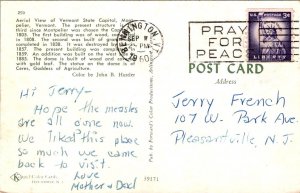 259
Aerial View of Vermont State Capitol, Mont-
pelier, Vermont. The present structure is the
third since Montpelier was chosen the Capital
in 1805. The first building was of wood, complete
in 1808. The second was of brick
completed in 1838. It was destroyed by fire
1857. The present building was completed in
1859. The dome is of wood and
with gold leaf. The statue on the dome is of
Ceres, Goddess of Agriculture.
Color by John R. Hassler
SEP
PM
1960
PRAY
FOR
PEACE
3¢
LIBERTY
POST CARD
Address
Hi Jerry-
Hope the measles
are all gone now.
We liked this place
so much we came
back to visit.
Love
Mother & Dad
Jerry French
107 W. Park Ave
Pleasantville, N.J.
Color Cards
39171